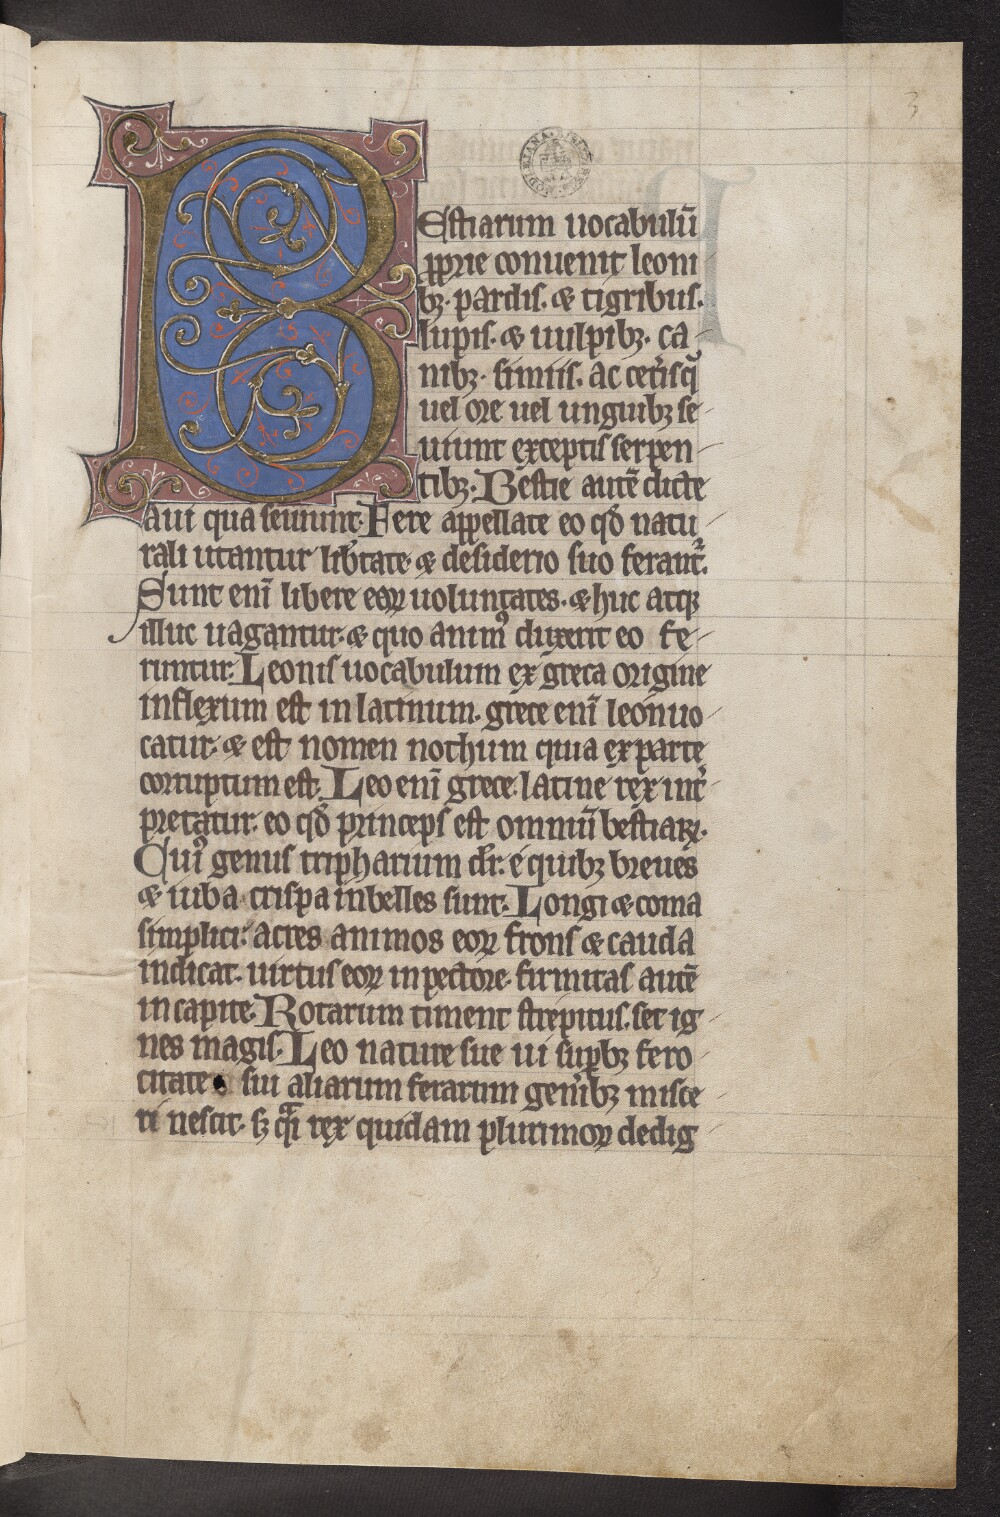 3
BEstiarum uocabulū
ꝓprie conuenit leoni
bꝫ· pardis· ⁊ tigribus·
lupis· ⁊ uulpibꝫ· ca
nibꝫ· simiis· ac cet̾isq̄
uel ore uel unguibꝫ se
uiunt exceptis serpen
tibꝫ· Bestie autē dicte
a ui qua seuiunt· Fere appellate eo qđ natu
rali utantur lib̾tate ⁊ desiderio suo ferant᷑·
Sunt enī libere eoꝝ uoluntates· ⁊ huc atqꝫ
illuc uagantur· ⁊ quo animꝰ duxerit eo fe
runtur· Leonis uocabulum ex greca origine
inflexum est in latinum· grece enī leon uo
catur· ⁊ est nomen nothum quia ex parte
corruptum est· Leo enī grece· latine rex int̾
pretatur· eo qđ princeps est omniū bestiaꝝ·
Cuiꝰ genus tripharium dr̄· e quibꝫ breues
⁊ iuba crispa inbelles sunt· Longi ⁊ coma
simplici· acres animos eoꝝ frons ⁊ cauda
indicat· uirtus eoꝝ in pectore· firmitas autē
in capite· Rotarum timent strepitus· set ig
nes magis· Leo nature sue ui suꝑbꝫ fero
citate sui aliarum ferarum gen̾ibꝫ misce
ri nescit· sꝫ qͣi rex quidam plurimoꝝ dedig